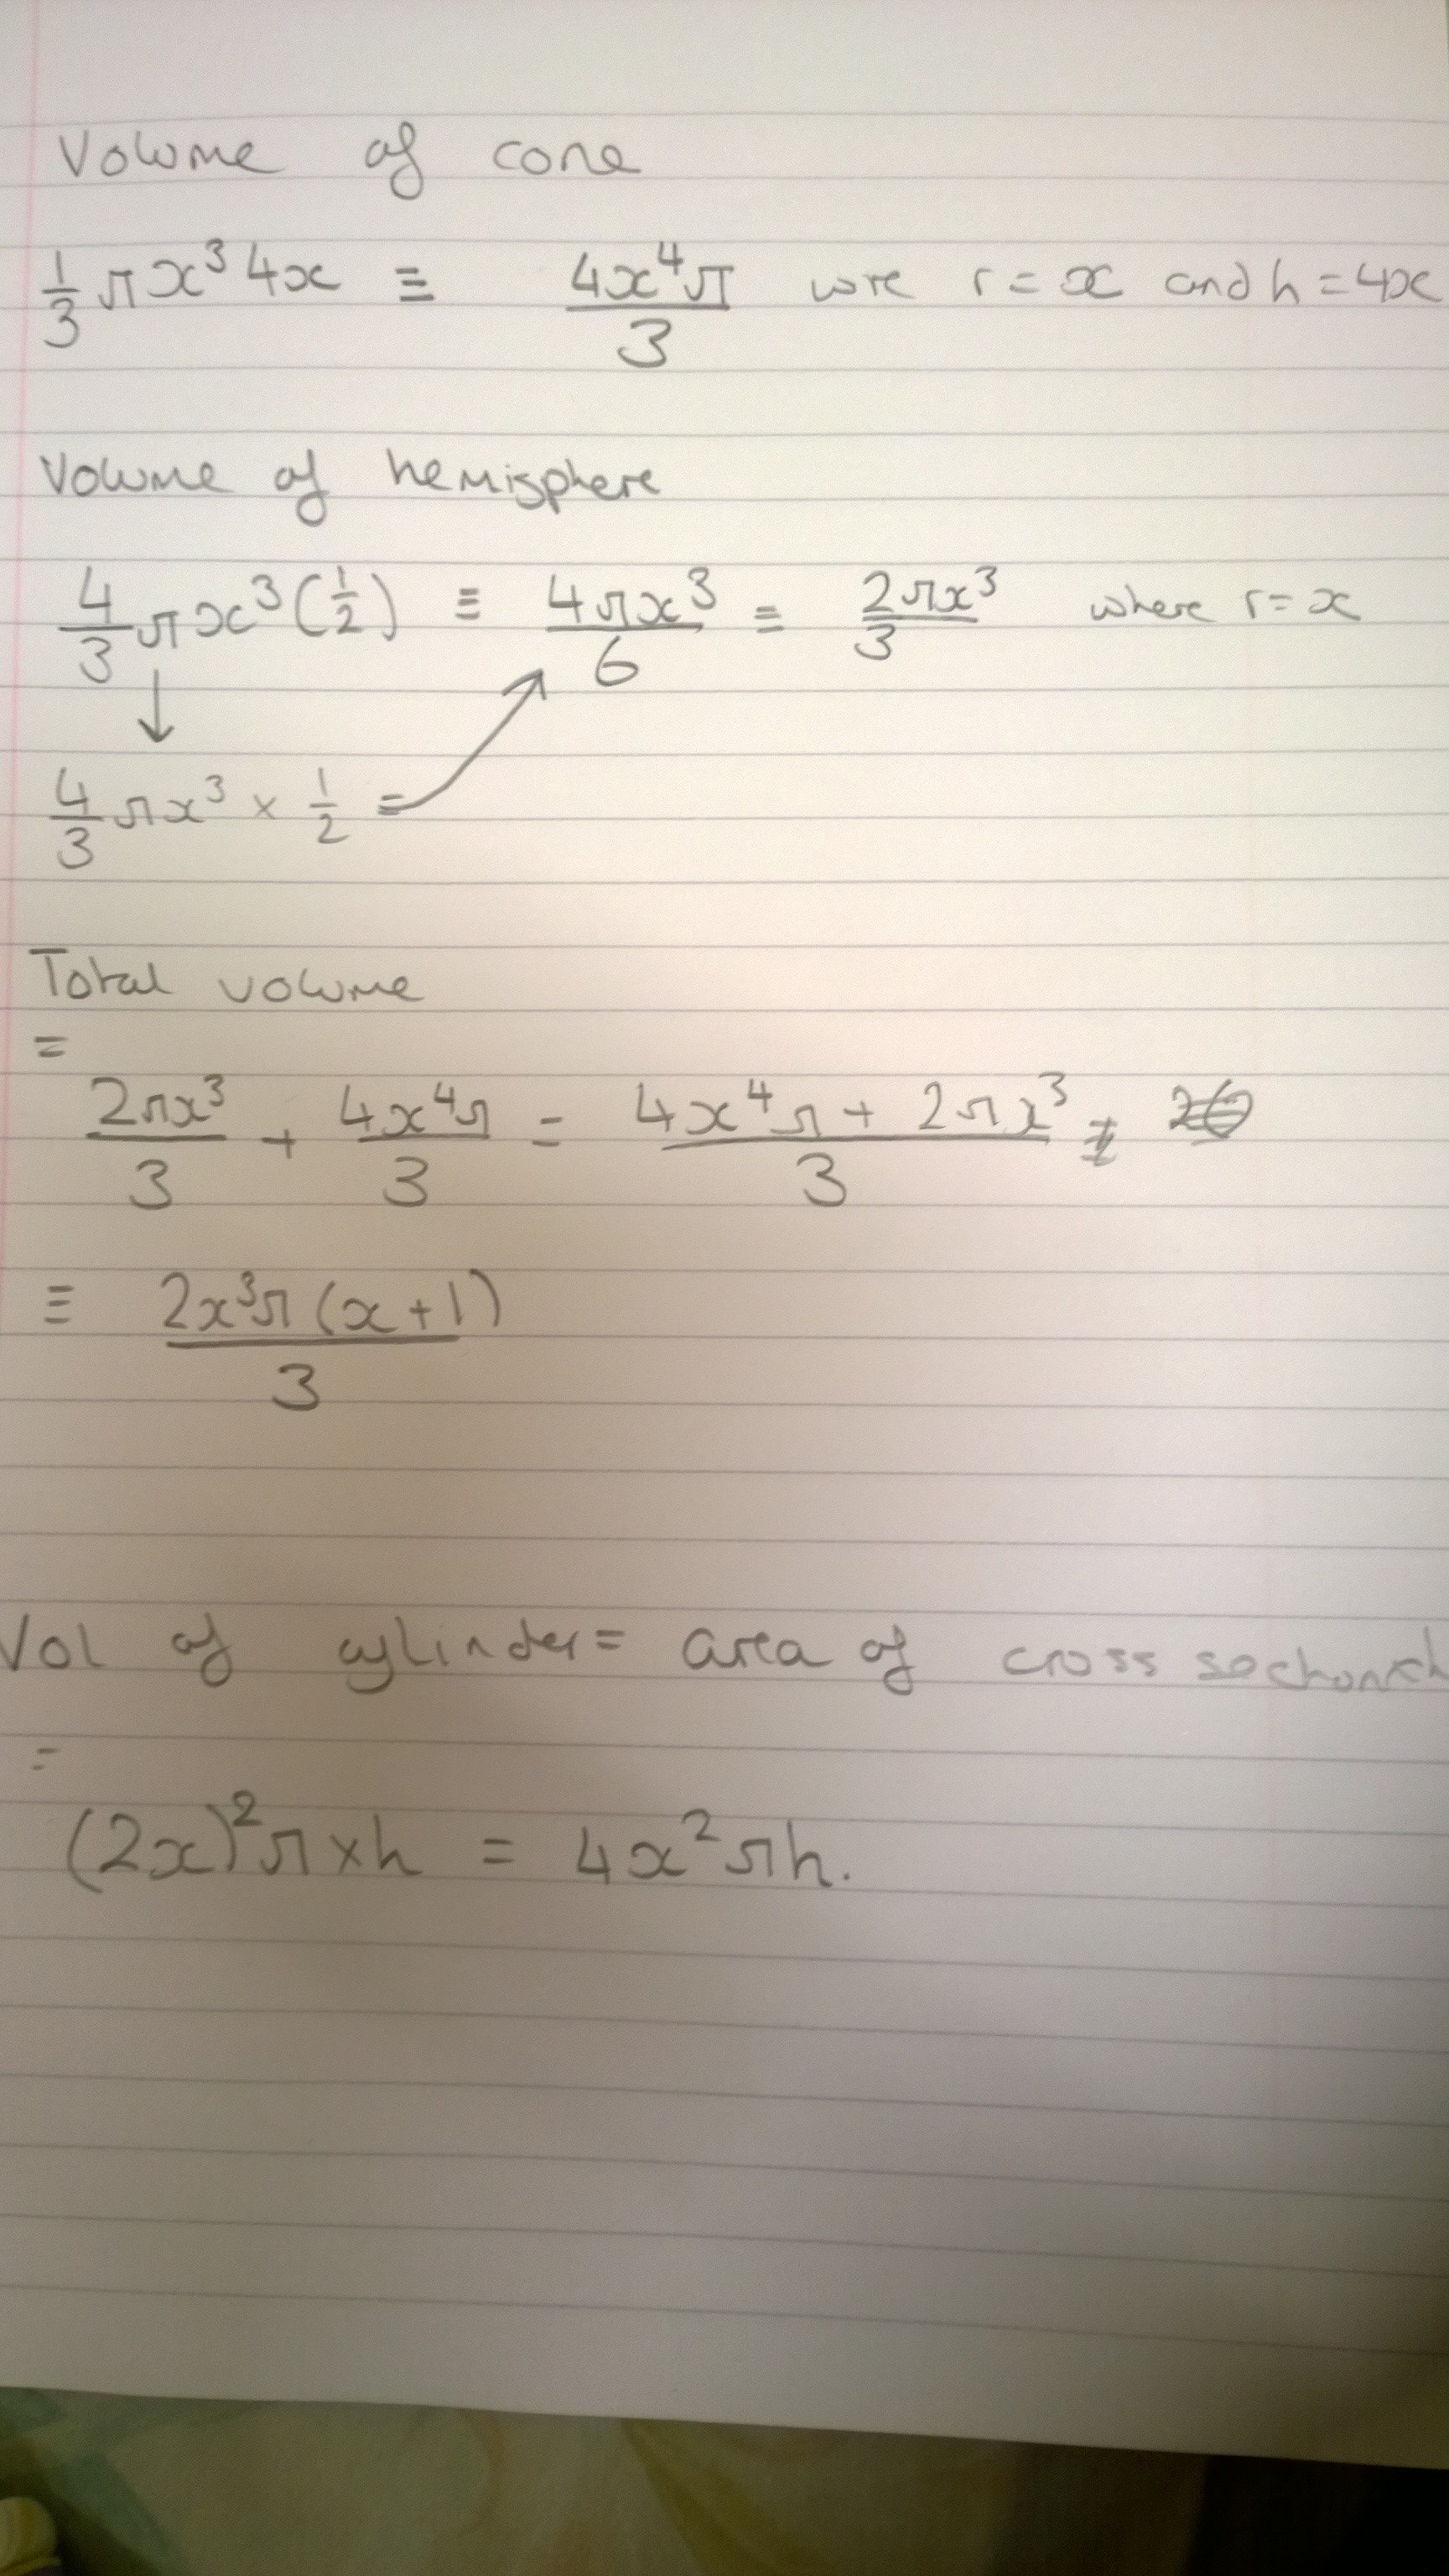 Volume of cone
1/3 πx³4x ≡ 4x⁴π/3 wre r = x and h = 4x
Volume of hemisphere
4/3 πx³(1/2) ≡ 4πx³/6 ≡ 2πx³/3 where r = x
↓
4/3 πx³ × 1/2 =
Total volume
=
2πx³/3 + 4x⁴π/3 = 4x⁴π + 2πx³/3
≡ 2x³π(x+1)/3
Vol of cylinder = area of cross section
=
(2x)²π×h = 4x²πh.